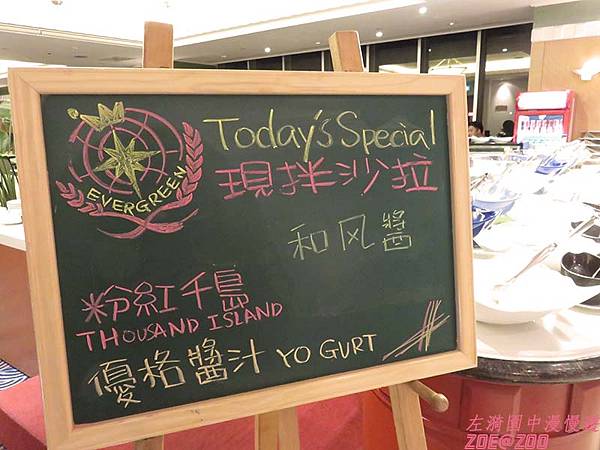 EVERGREEN
Today's Special
現拌沙拉
和风醬
粉紅千島
THOUSAND ISLAND
優格醬汁 YO GURT
左漪園中漫慢
ZOE@ZOO